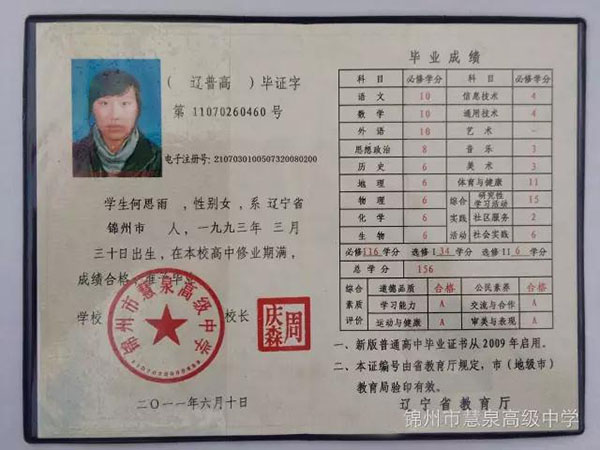 ( 辽普高 ) 毕证字
第 11070260460 号
电子注册号: 2107030100507320080200
学生何思雨 , 性别女 , 系 辽宁省
锦州市 人 , 一九九三年 三 月
三十日出生 , 在本校高中修业期满 ,
成绩合格 , 准予毕业
学校 校长
锦州市慧泉高级中学
周庆森
二〇一一年六月十日
毕业成绩
科 目 必修学分 科 目 必修学分
语 文 10 信息技术 4
数 学 10 通用技术 4
外 语 10 艺 术 -
思想政治 8 音 乐 3
历 史 6 美 术 3
地 理 6 体育与健康 11
物 理 6 综合 研究性学习活动 15
化 学 6 实践 社区服务 2
生 物 6 活动 社会实践 6
必修 116 学分 选修 I 34 学分 选修 II 6 学分
总 学 分 156
综合 道德品质 合格 公民素养 合格
素质 学习能力 A 交流与合作 A
评价 运动与健康 A 审美与表现 A
一、新版普通高中毕业证书从2009年启用。
二、本证编号由省教育厅规定, 市 (地级市)
教育局验印有效。
辽宁省教育厅
锦州市慧泉高级中学